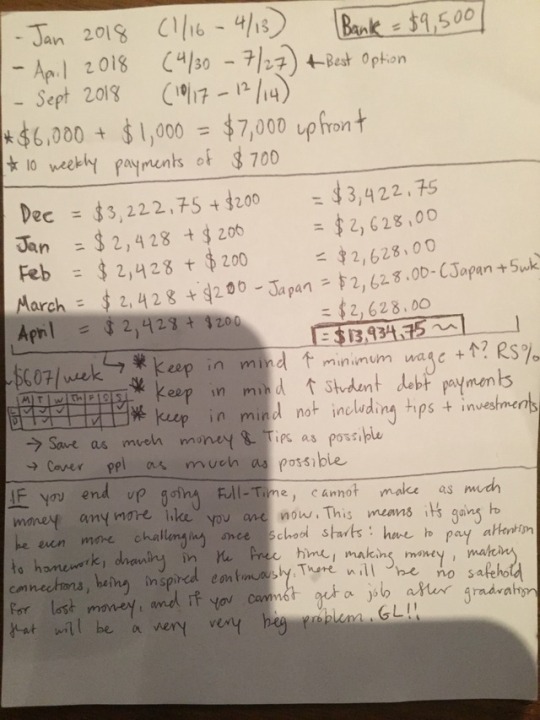 - Jan 2018 (1/16 - 4/13)
Bank = $9,500
- April 2018 (4/30 - 7/27) ← Best Option
- Sept 2018 (10/17 - 12/14)
* $6,000 + $1,000 = $7,000 upfront
* 10 weekly payments of $700
Dec = $3,222.75 + $200 = $3,422.75
Jan = $2,428 + $200 = $2,628.00
Feb = $2,428 + $200 = $2,628.00
March = $2,428 + $200 - Japan = $2,628.00 - (Japan + 5wk)
April = $2,428 + $200 = $2,628.00
= $13,934.75 ~~
~$607/week → * Keep in mind ↑ minimum wage + ↑? RS%
* Keep in mind ↑ student debt payments
M T W Th F S S
L
D
* Keep in mind not including tips + investments
→ Save as much money & Tips as possible
→ Cover ppl as much as possible
IF you end up going Full-Time, cannot make as much
money anymore like you are now. This means it's going to
be even more challenging once school starts: have to pay attention
to homework, drawing in the free time, making money, making
connections, being inspired continuously. There will be no safehold
for lost money, and if you cannot get a job after graduation
that will be a very very big problem. GL!!